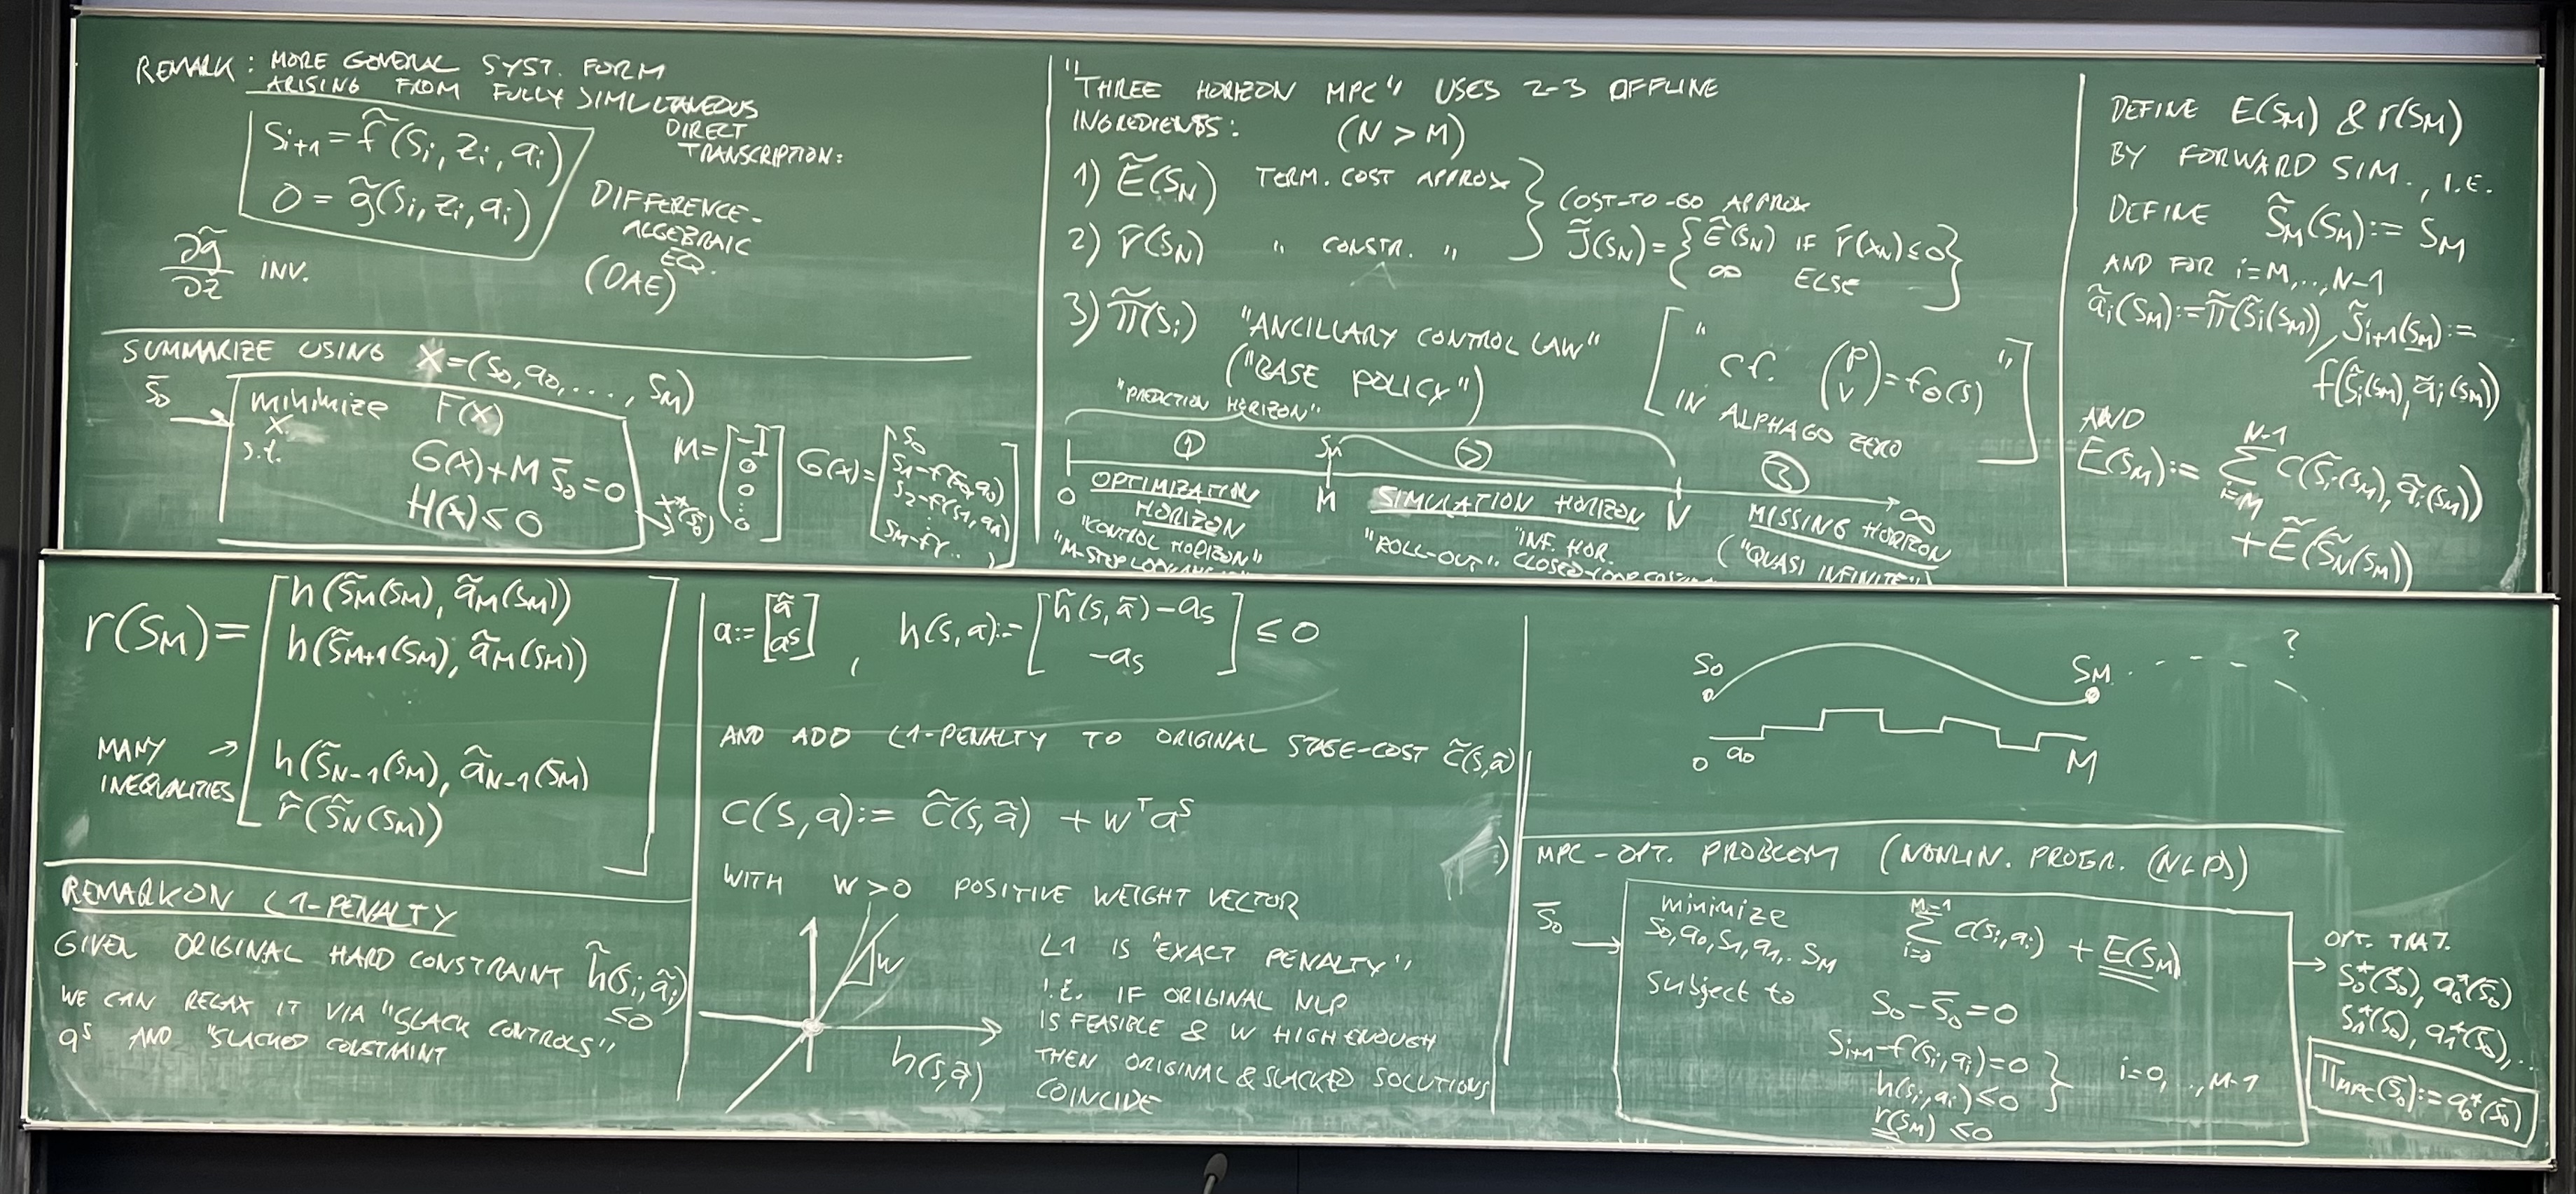 REMARK: MORE GENERAL SYST. FORM
ARISING FROM FULLY SIMULTANEOUS
DIRECT
TRANSCRIPTION:
s_{i+1} = f̃(s_i, z_i, a_i)
0 = g̃(s_i, z_i, a_i)
DIFFERENCE-
ALGEBRAIC
EQ.
(DAE)
∂g̃/∂z INV.
SUMMARIZE USING X=(s_0, a_0, ..., s_M)
s̄_0 →
minimize F(X)
X
s.t.
G(X)+M s̄_0 = 0
H(X) ≤ 0
→ X*(s̄_0)
M = [-I 0 0 : 0]
G(X) = [s_0
s_1-f(s_0,a_0)
s_2-f(s_1,a_1)
:
s_M-f(..)]
"THREE HORIZON MPC" USES 2-3 OFFLINE
INGREDIENTS: (N > M)
1) Ẽ(s_N) TERM. COST APPROX
2) r̃(s_N) " CONSTR. "
COST-TO-GO APPROX
J̃(s_N) = { Ẽ(s_N) IF r̃(x_N) ≤ 0
∞ ELSE }
3) π̃(s_i) "ANCILLARY CONTROL LAW"
("BASE POLICY")
[" cf. (p v) = f_θ(s) "
IN ALPHAGO ZERO]
"PREDICTION HORIZON"
① s_M ② ③
0 M N ∞
OPTIMIZATION
HORIZON
"CONTROL HORIZON"
"M-STEP
SIMULATION HORIZON
"ROLL-OUT" "INF. HOR.
CLOSED-LOOP
MISSING HORIZON
("QUASI INFINITE")
DEFINE E(s_M) & r(s_M)
BY FORWARD SIM., I.E.
DEFINE s̃_M(s_M) := s_M
AND FOR i=M,..,N-1
ã_i(s_M) := π̃(s̃_i(s_M)), s̃_{i+1}(s_M) :=
f(s̃_i(s_M), ã_i(s_M))
AND
E(s_M) := Σ_{i=M}^{N-1} c(s̃_i(s_M), ã_i(s_M))
+ Ẽ(s̃_N(s_M))
r(s_M) = [h(s̃_M(s_M), ã_M(s_M))
h(s̃_{M+1}(s_M), ã_M(s_M))
h(s̃_{N-1}(s_M), ã_{N-1}(s_M)
r̃(s̃_N(s_M))]
MANY →
INEQUALITIES
REMARK ON L1-PENALTY
GIVEN ORIGINAL HARD CONSTRAINT h̃(s_i, ã_i)
≤0
WE CAN RELAX IT VIA "SLACK CONTROLS"
a^s AND "SLACKED CONSTRAINT
a := [ã a^s], h(s,a) := [h̃(s,ã) - a_s
-a_s] ≤ 0
AND ADD L1-PENALTY TO ORIGINAL STAGE-COST c̃(s,ã)
c(s,a) := c̃(s,ã) + w^T a^s
WITH w>0 POSITIVE WEIGHT VECTOR
w
h(s,ã)
L1 IS "EXACT PENALTY",
I.E. IF ORIGINAL NLP
IS FEASIBLE & W HIGH ENOUGH
THEN ORIGINAL & SLACKED SOLUTIONS
COINCIDE
s_0 s_M ?
0 a_0 M
MPC-OPT. PROBLEM (NONLIN. PROGR. (NLP))
s̄_0 →
minimize Σ_{i=0}^{M-1} c(s_i,a_i) + E(s_M)
s_0,a_0,s_1,a_1,..s_M
subject to s_0 - s̄_0 = 0
s_{i+1} - f(s_i,a_i) = 0
h(s_i,a_i) ≤ 0
} i=0, .., M-1
r(s_M) ≤ 0
→ OPT. TRAJ.
s_0*(s̄_0), a_0*(s̄_0)
s_1*(s̄_0), a_1*(s̄_0), ..
π_MPC(s̄_0) := a_0*(s̄_0)